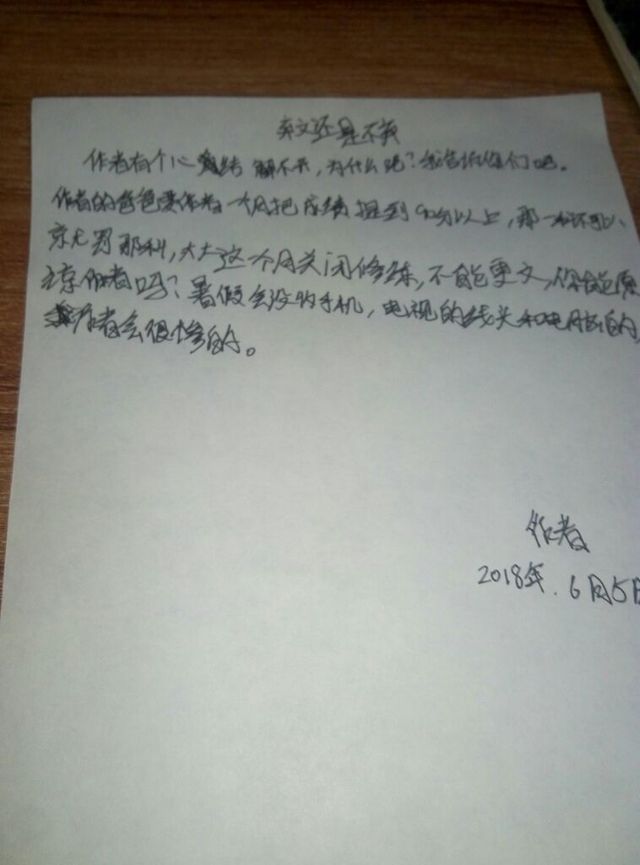 弃文还是不弃
作者有个心结解不开，为什么呢？我告诉你们吧。
作者的爸爸要作者一个月把成绩提到90分以上，那一科不到，
就罚那科，大大这个月关闭修炼，不能更文，你能原
谅作者吗？暑假会没收手机，电视的线头和电脑的，
作者会很惨的。
作者
2018年.6月5日